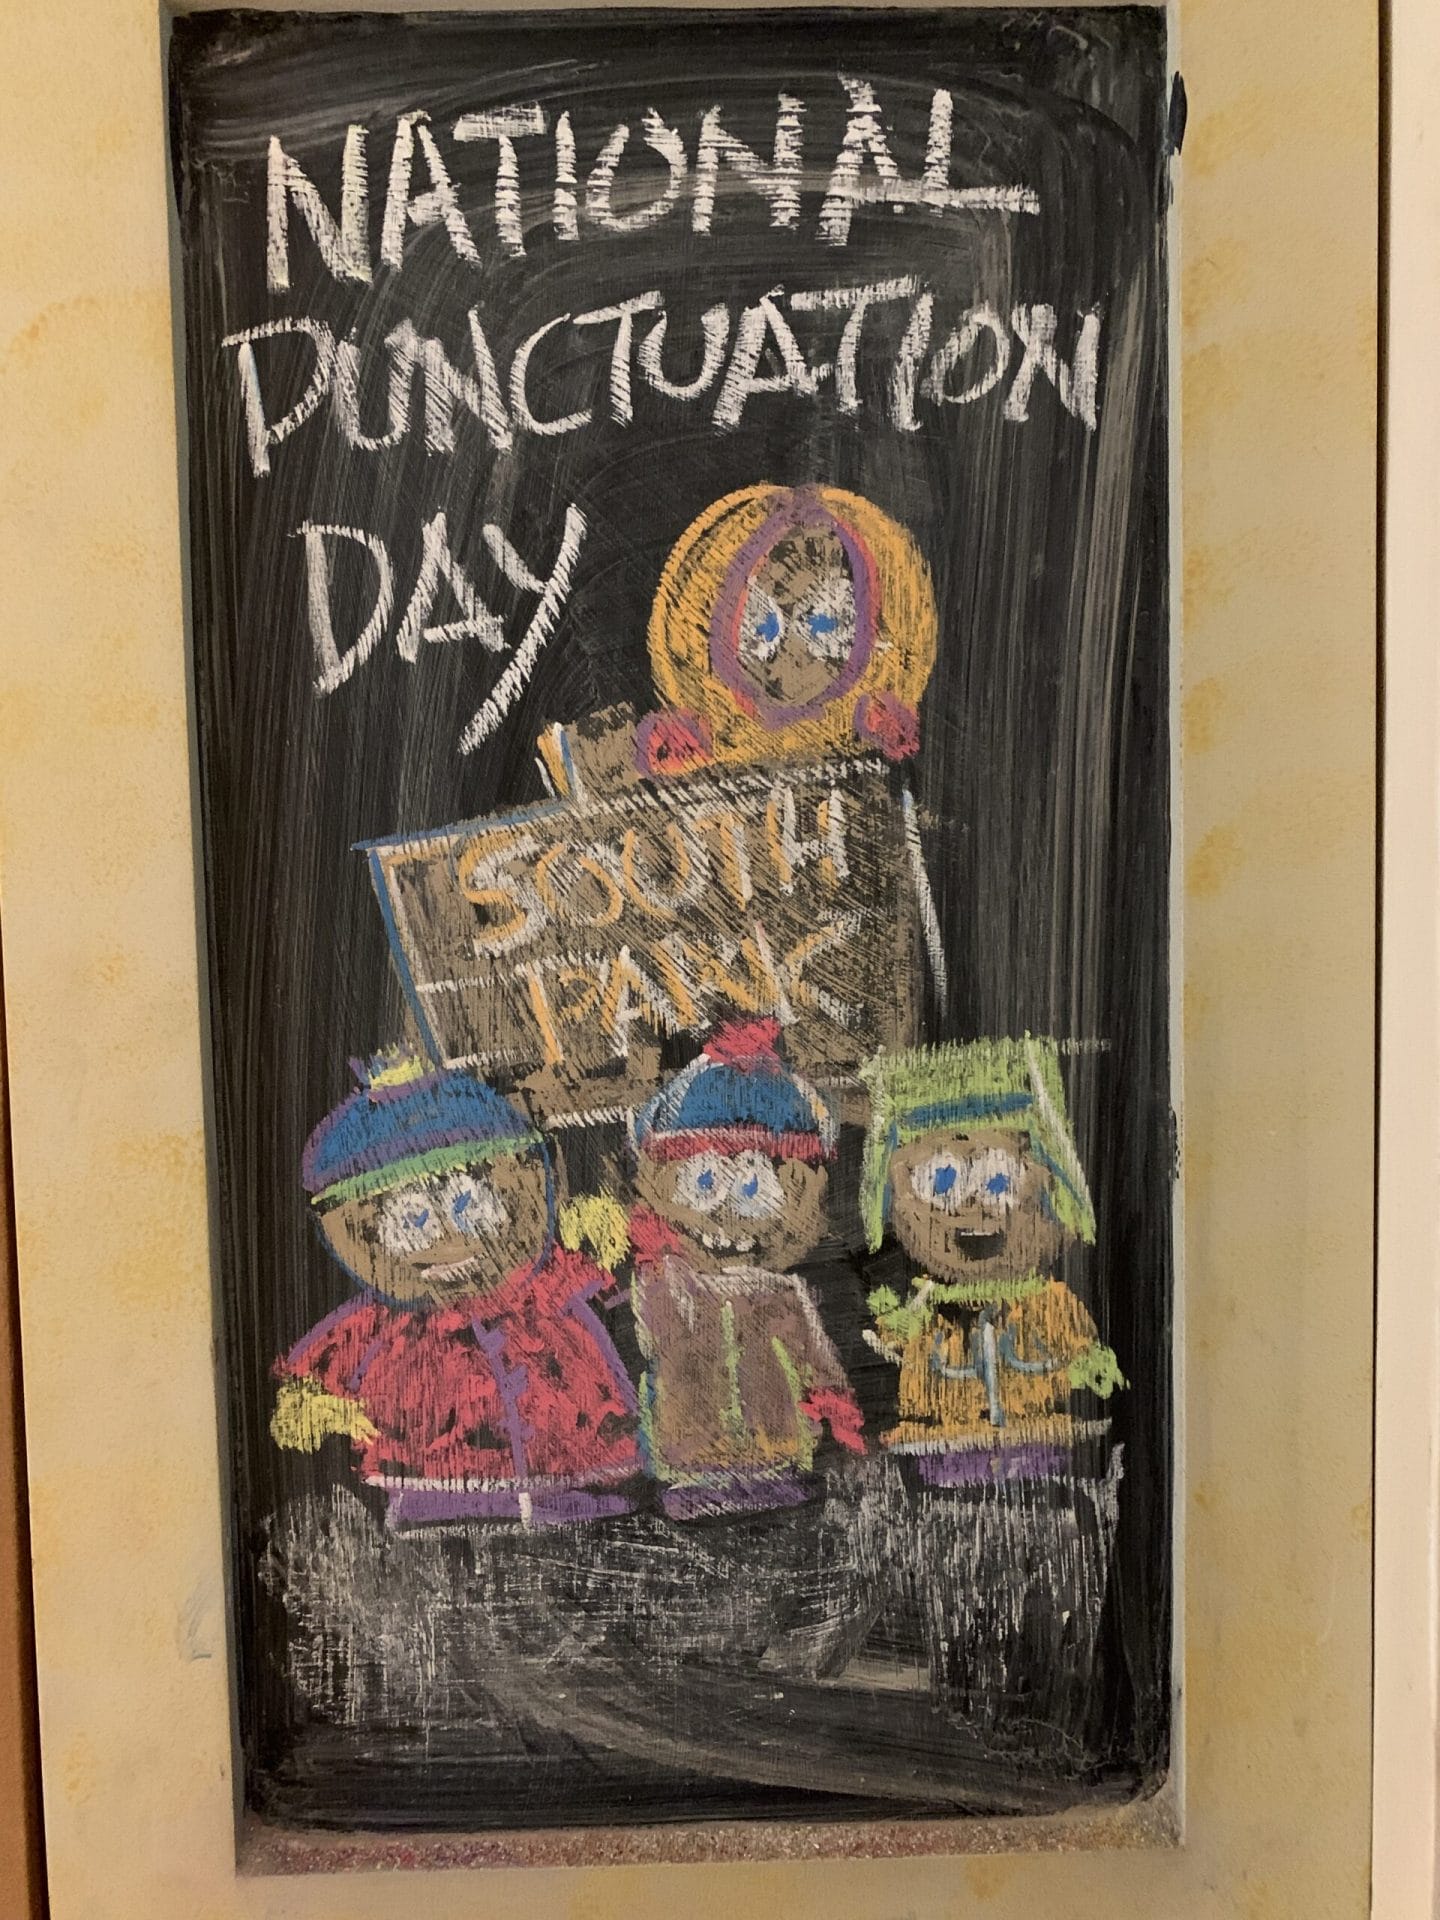 NATIONAL
PUNCTUATION
DAY
SOUTH
PARK